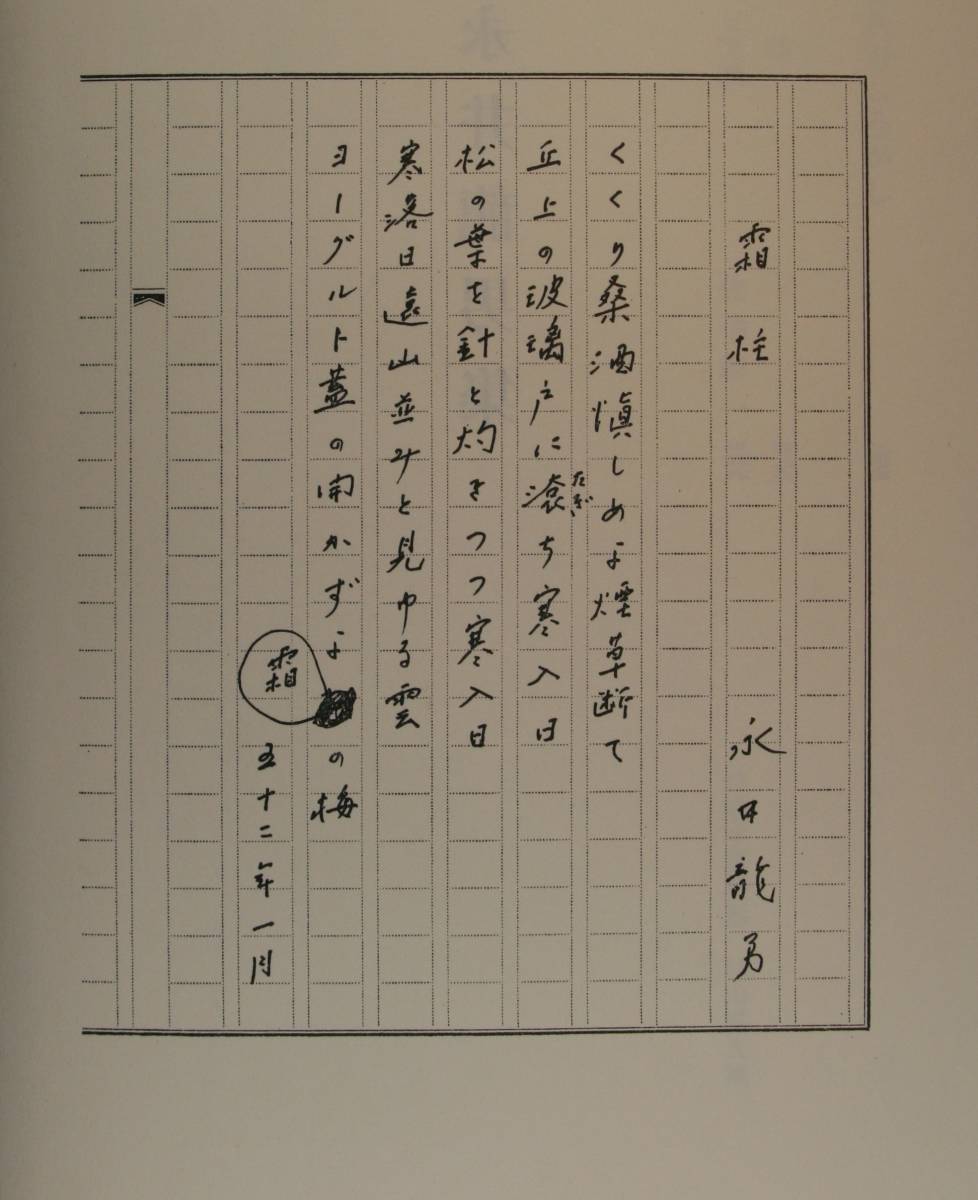 霜柱　永井龍男
くくり桑酒愼しめよ煙草断て
たぎ
丘上の玻璃戸に滾ち寒入日
松の葉を針と灼きつつ寒入日
寒落日遠山並みと見ゆる雲
ヨーグルト蓋の開かずよ霜の梅
五十二年一月